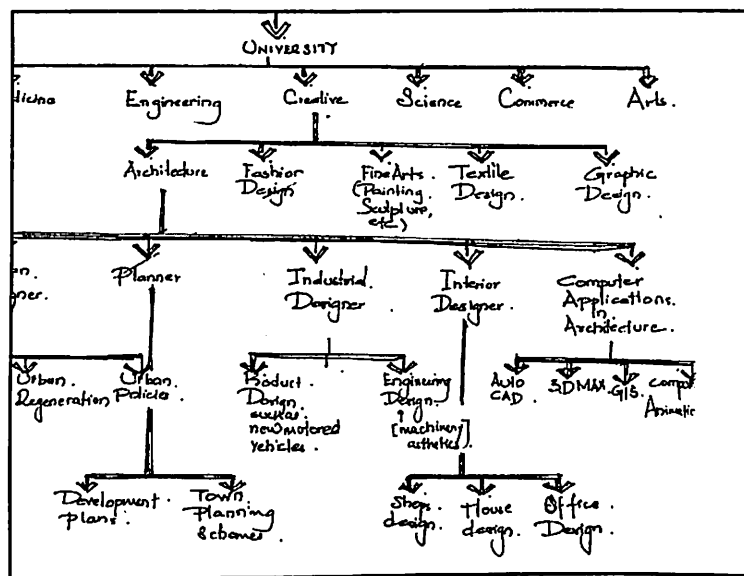 UNIVERSITY
dicine Engineering Creative Science Commerce Arts.
Architecture Fashion Design Fine Arts. (Painting. Sculpture, etc.) Textile Design. Graphic Design.
Planner Industrial. Designer Interior Designer Computer Applications. in Architecture.
Urban. Regeneration Urban. Policies Product. Design such as. new motored vehicles Design. [machinery asthetics]. AUTO CAD 3D MAX. GIS.
Development. plans. Town. Planning Schemes Shops design. House design. Office. Design.